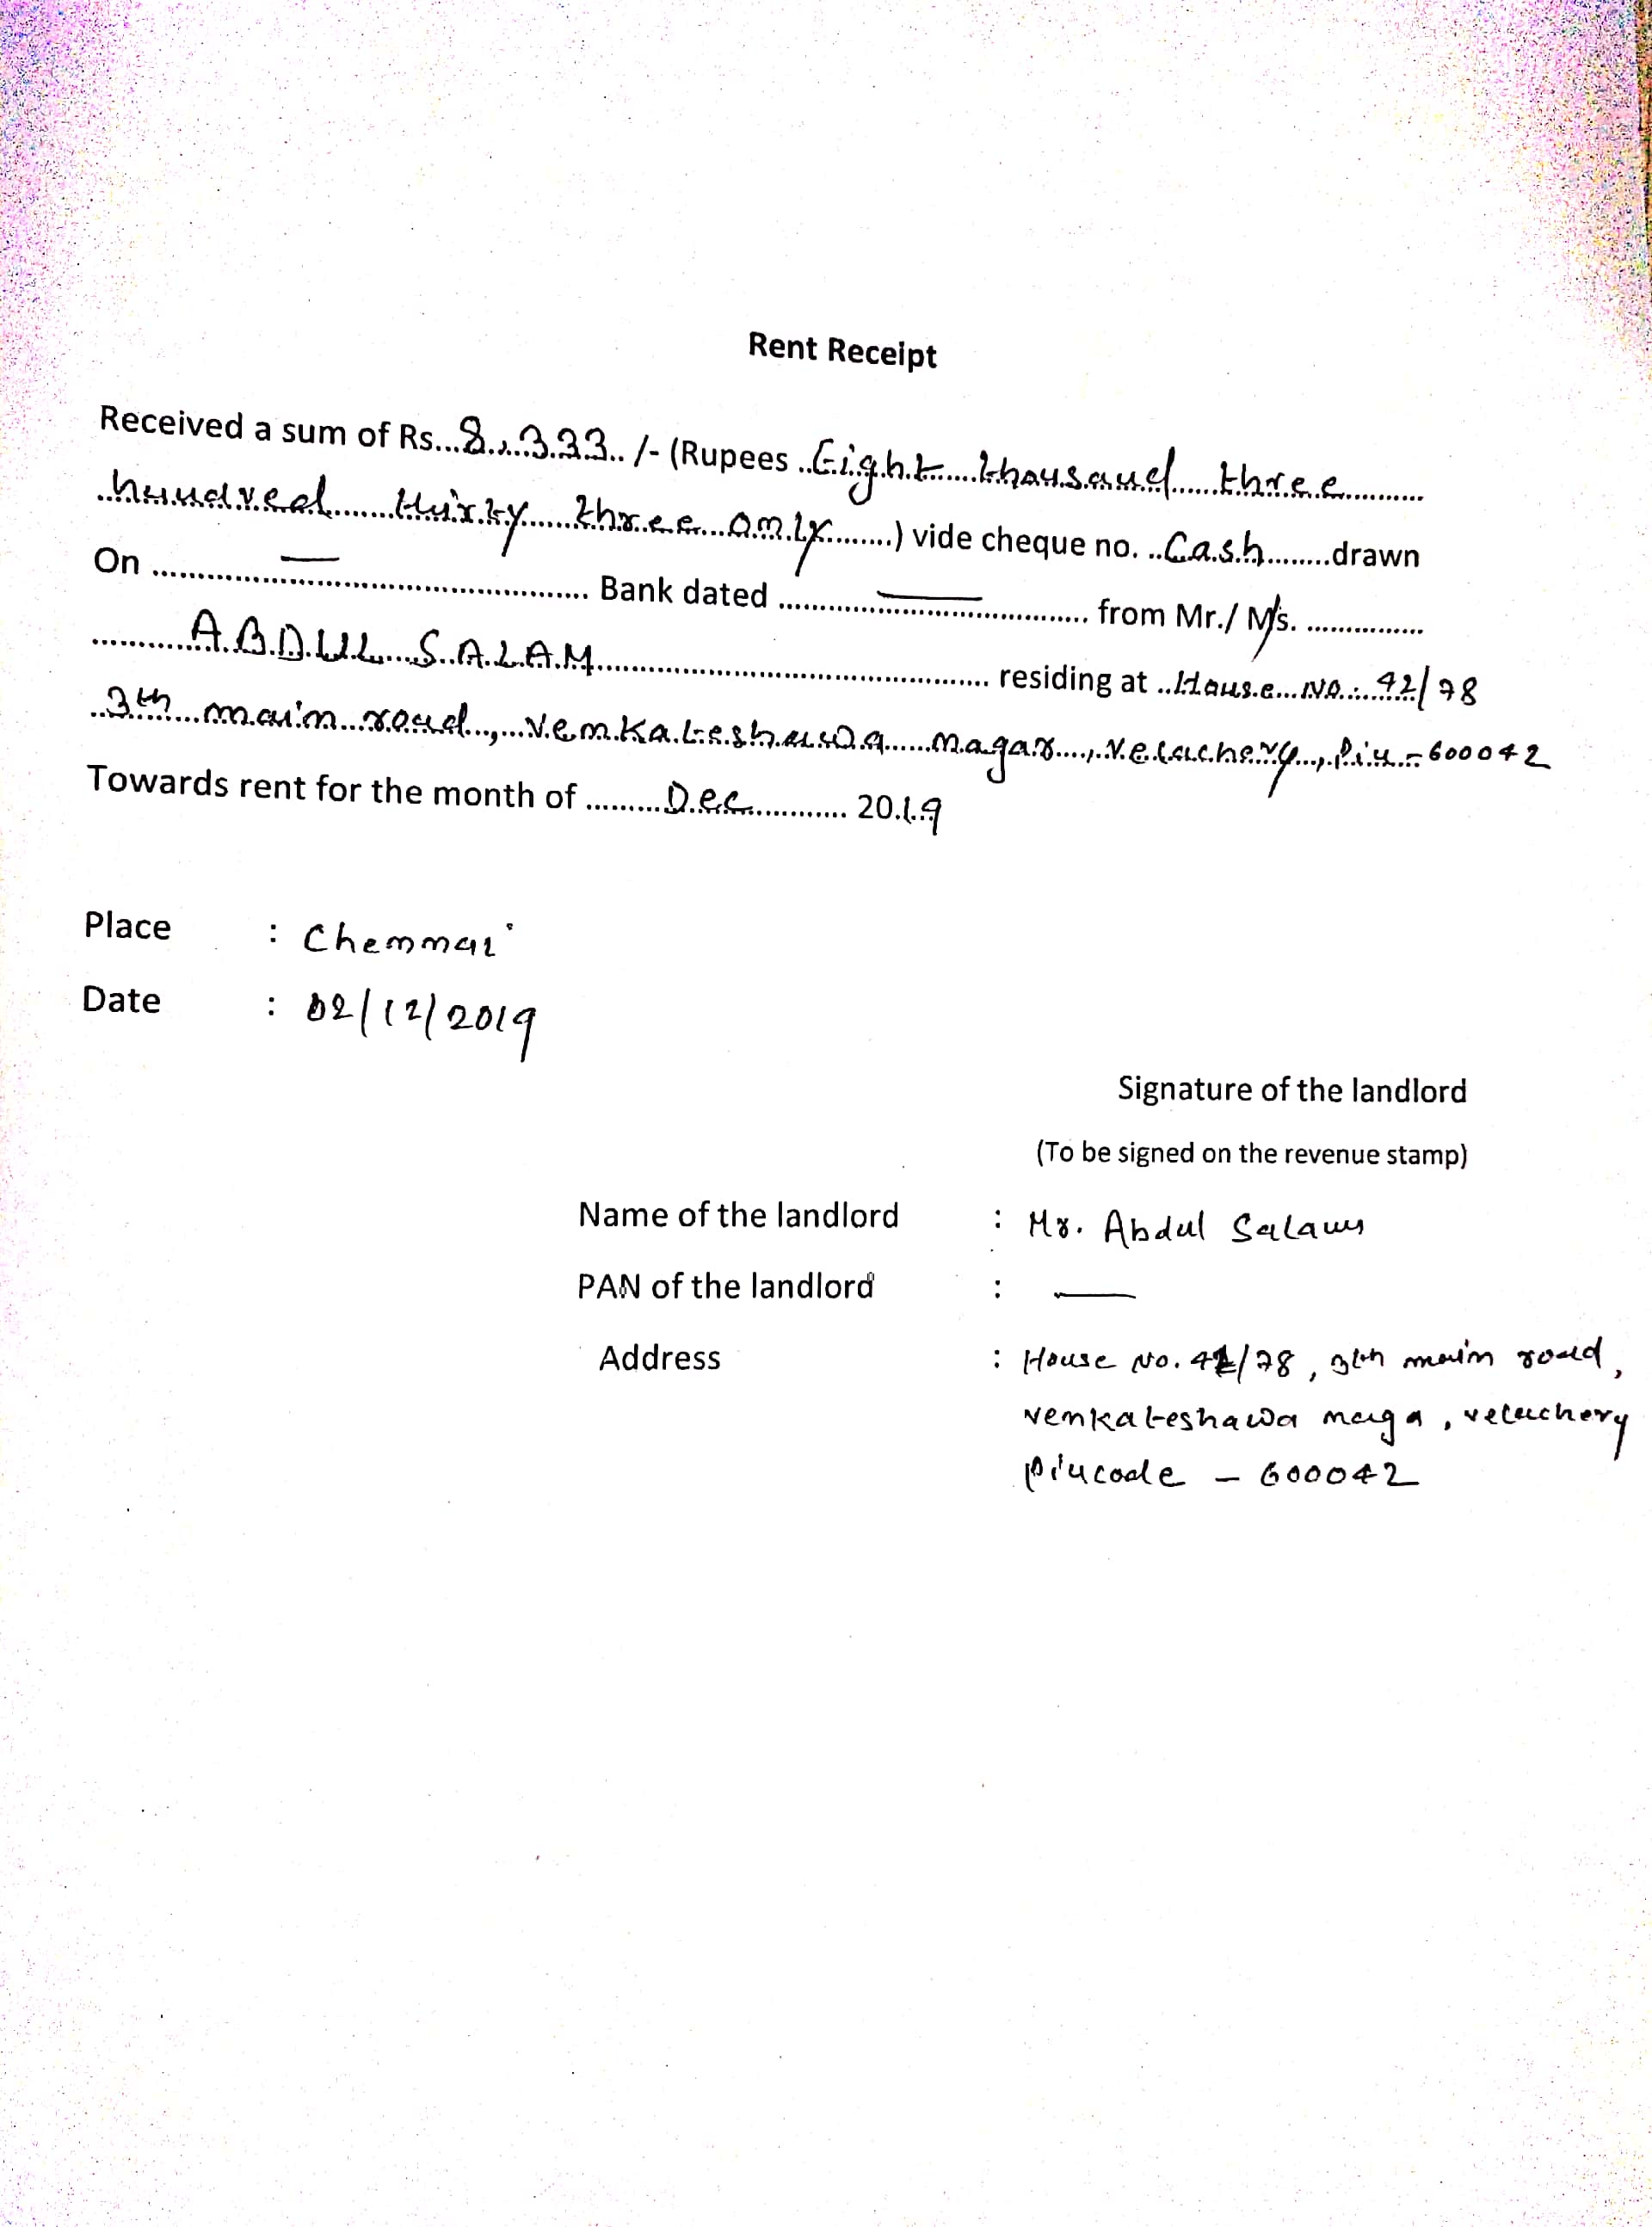 Rent Receipt
Received a sum of Rs...8,333../- (Rupees ..Eight....thousand....three..........
..hundred......thirty.....three...only........) vide cheque no. ..Cash........drawn
On ......—...... Bank dated ......—...... from Mr./ M/s. ...............
...........ABDUL....SALAM........................................ residing at ..House...No.:..42/78
..3th...main...road..,...Venkateshawa.....nagar....,.Velachery..,.Pin.-600042
Towards rent for the month of .........Dec............ 2019
Place : Chennai
Date : 02/12/2019
Signature of the landlord
(To be signed on the revenue stamp)
Name of the landlord : Mr. Abdul Salam
PAN of the landlord : —
Address : House No. 42/78, 3th main road,
Venkateshawa naga, velachery
Pincode - 600042